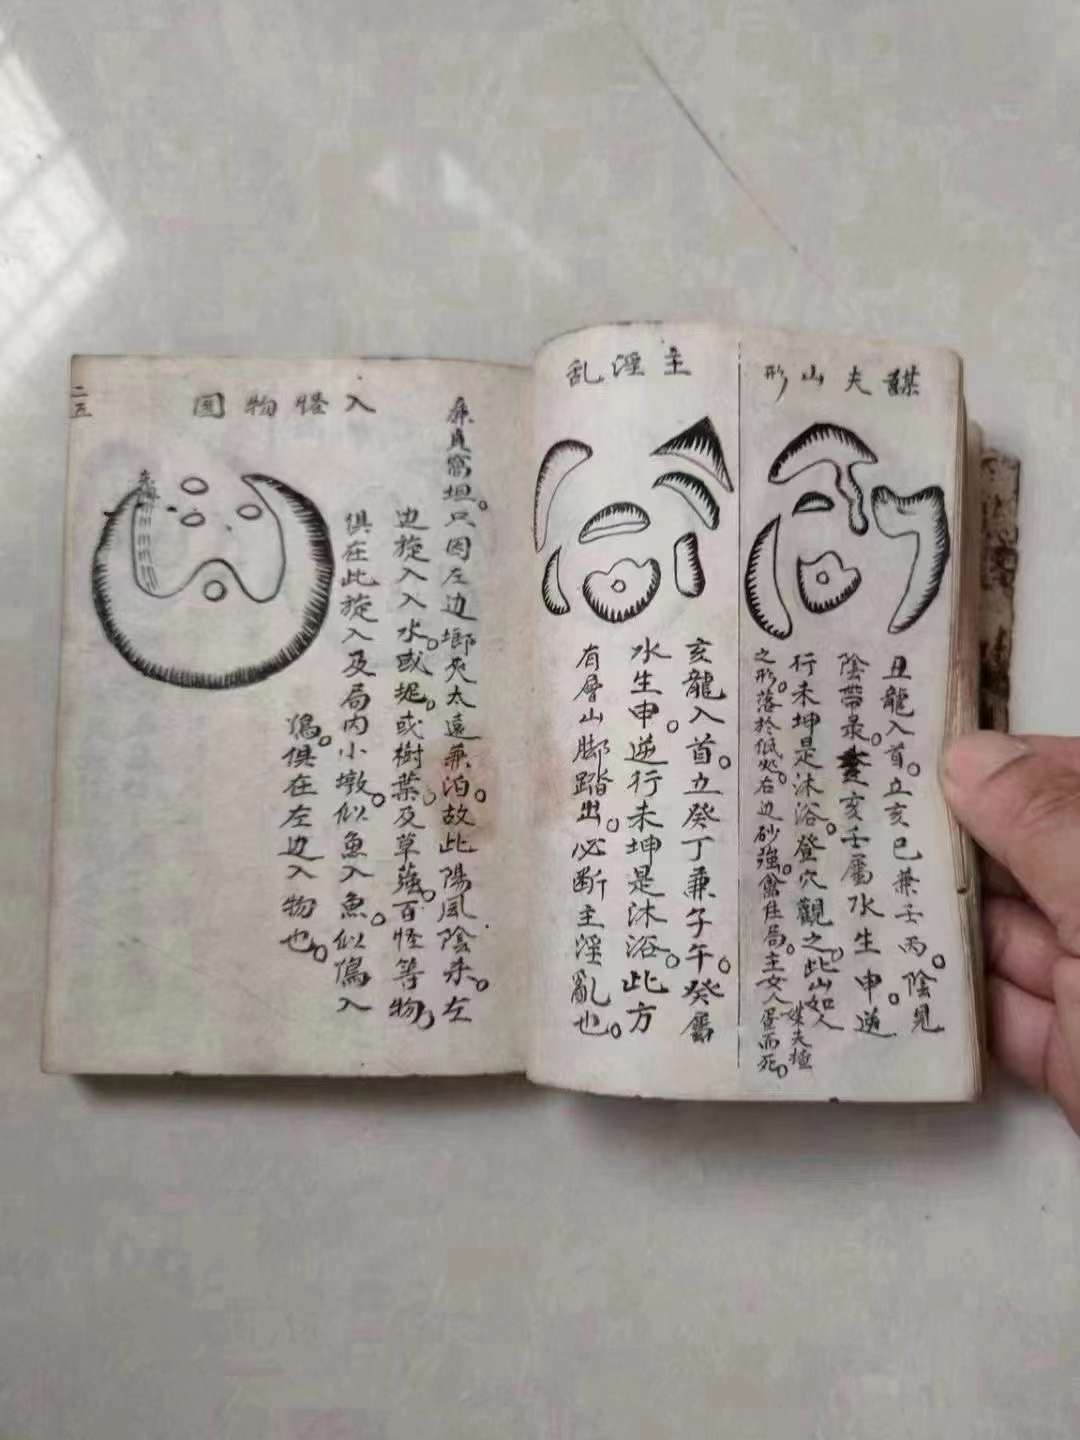 謀夫山形
丑龍入首。立亥巳兼壬丙。陰見
陰帶录。亥壬屬水生申。逆
行未坤是沐浴。登穴觀之。此山如人
之形。落於低処。右边砂強。主女人
夫
而死。
主淫乱
亥龍入首。立癸丁兼子午。癸屬
水生申。逆行未坤是沐浴。此方
有層山脚踏出。必断主淫亂也。
入怪物圖
窩坦。只因左边塚夾太遠兼泊。故此陽風陰杀。左
边旋入入水。或坭。或樹葉。及草。百怪等物，
俱在此旋入及局内小墩。似魚入魚。似傷入
傷。俱在左边入物也。
二五